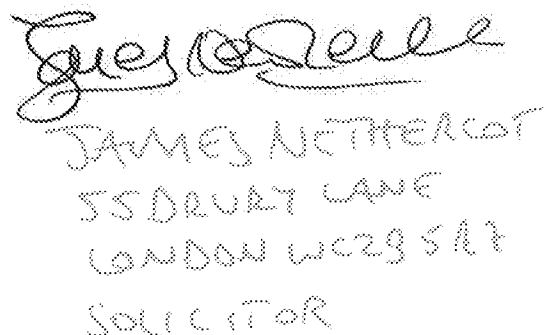 JAMES NETHERCOT
55 DRURY LANE
LONDON WC2B 5RZ
SOLICITOR